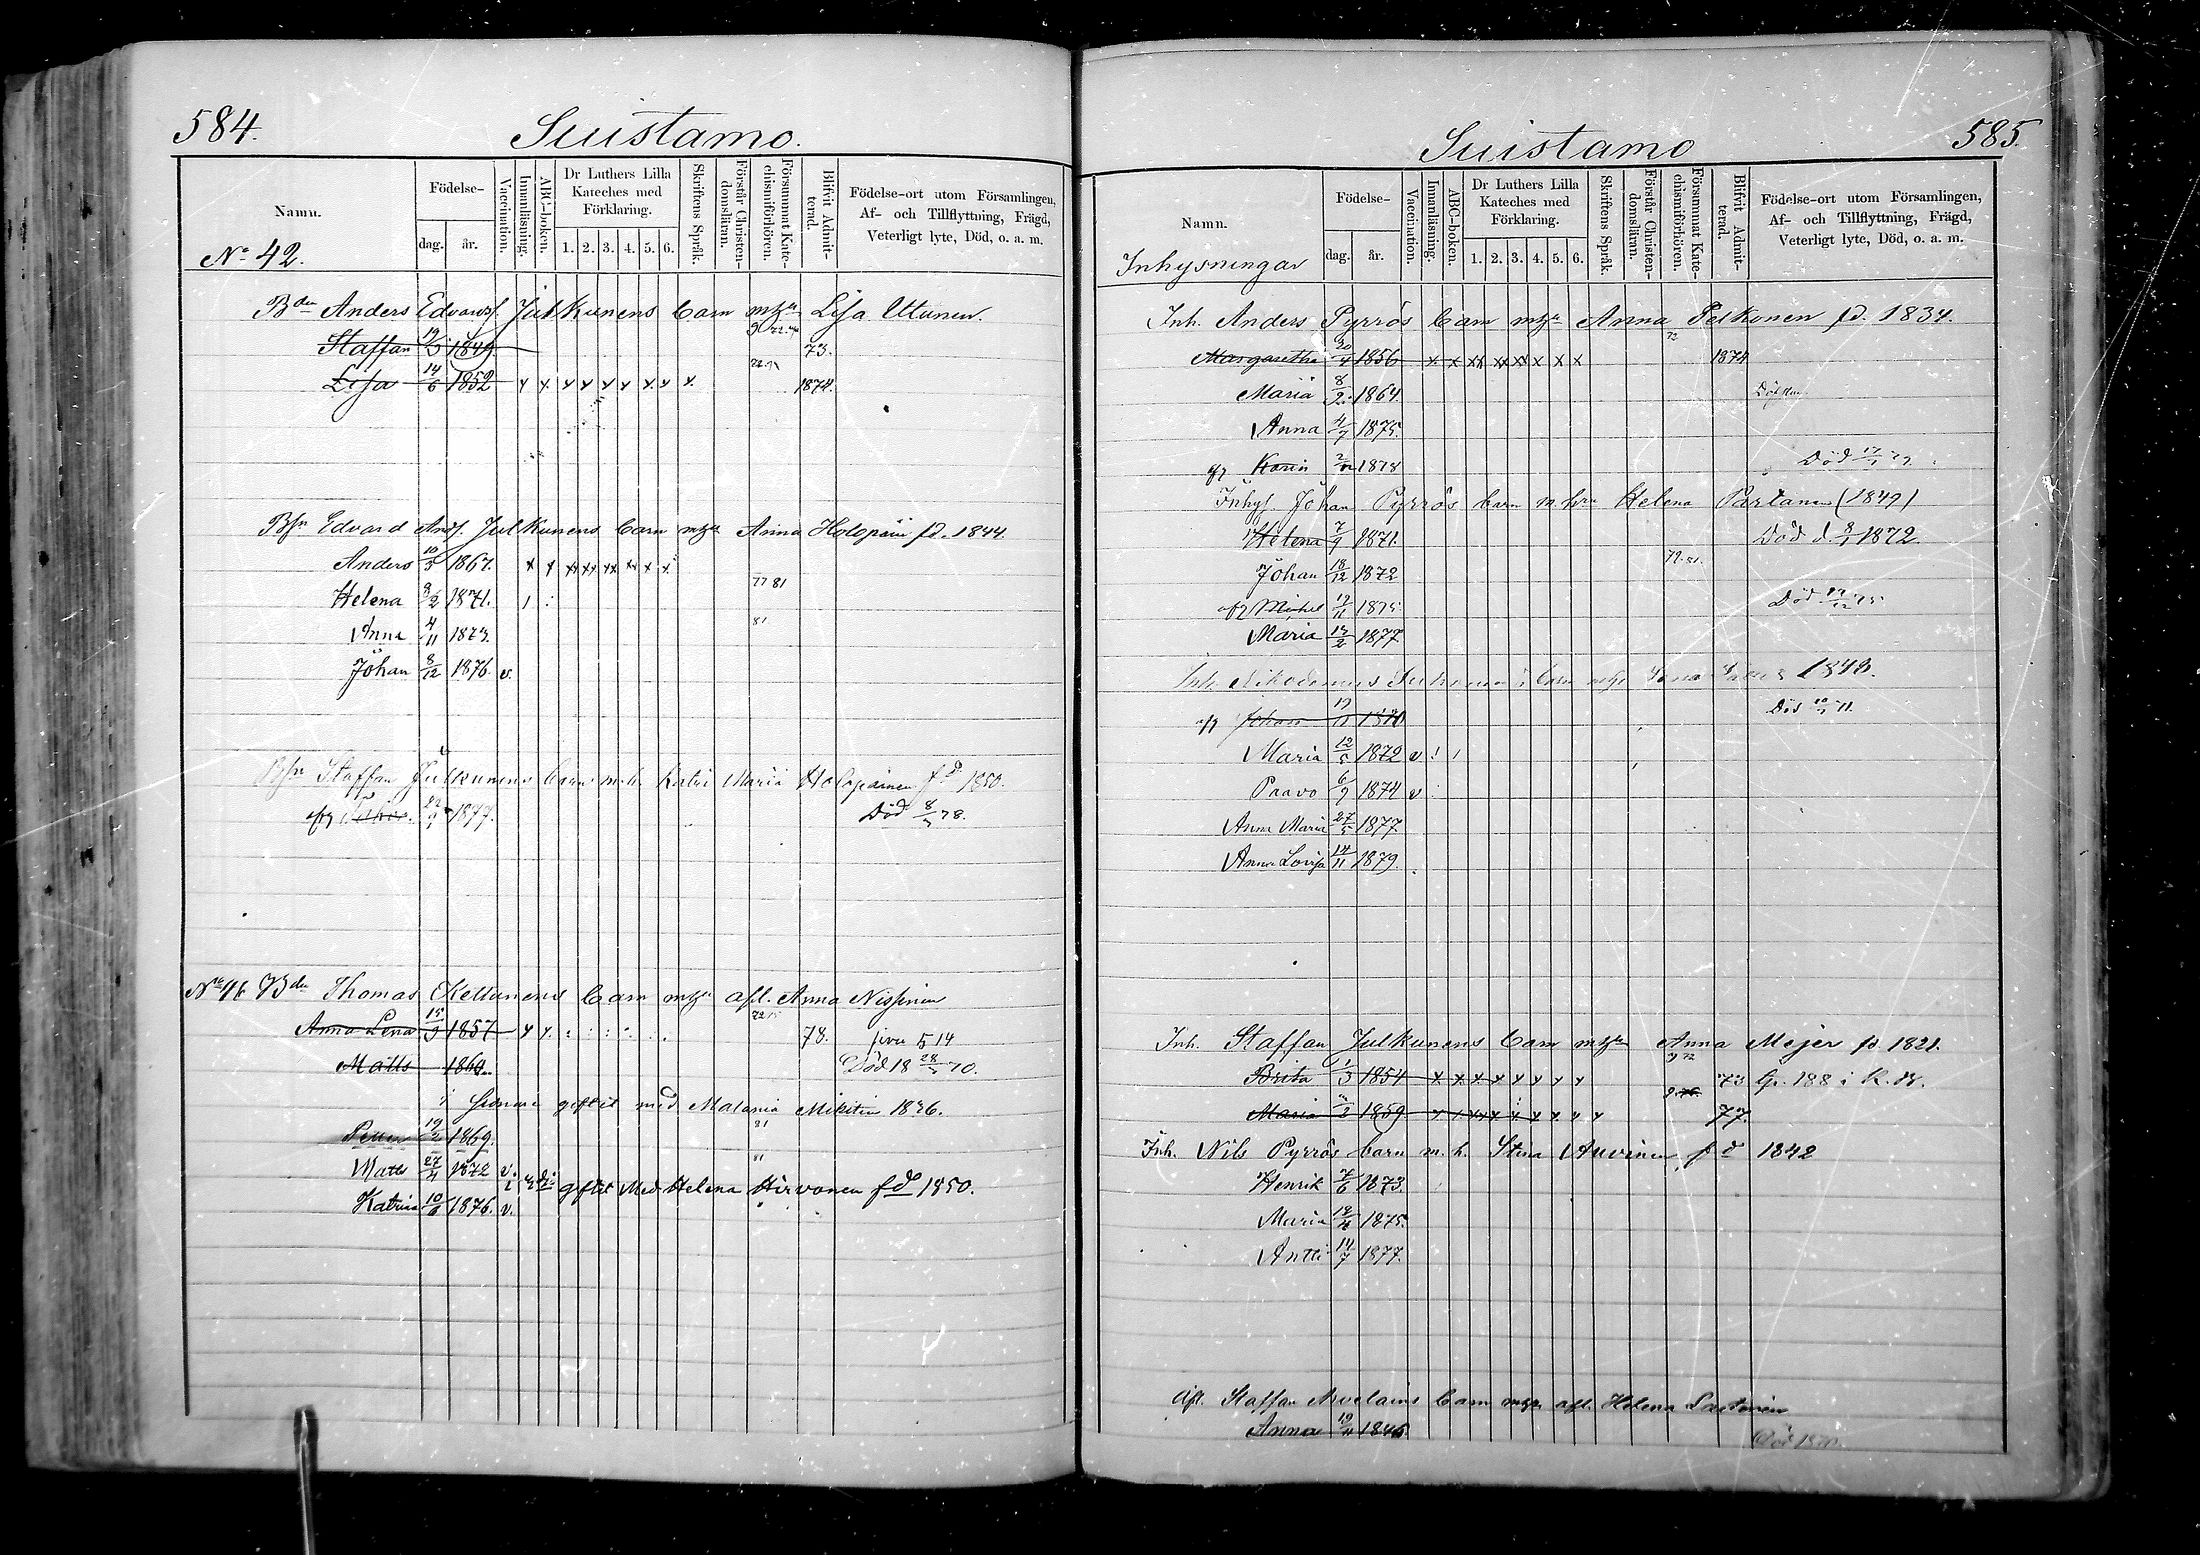 584.
Suistamo.
Namn.
Födelse-
dag.
år.
Vaccination.
Innanläsning.
ABC-boken.
Dr Luthers Lilla Kateches med Förklaring.
1. 2. 3. 4. 5. 6.
Skriftens Språk.
Förstår Christendomsläran.
Försummat Katechismiförhören.
Blifvit Admitterad.
Födelse-ort utom Församlingen, Af- och Tillflyttning, Frägd, Veterligt lyte, Död, o. a. m.
No 42.
Bden Anders Edvards. Julkunens barn m hu Lisa
Staffan 19/3 1849 73.
Lisa 14/6 1852 x x x x x x x x x 1874.
Bsn Edvard And. Julkunens barn m hu Anna Holopain fd. 1844.
Anders 10/3 1867.
Helena 3/2 1871. 77 81
Anna 4/11 1873. 81
Johan 8/12 1876. v.
Bsn Staffan Julkunens barn m. h. Maria Holopainen fd 1850.
1877. Död 8/3 78.
No 46 Bden Thomas Kettunens barn m hu afl. Anna Nissinen
Anna Lena 15/9 1857 78. 514
Matts 1860 Död 18 28/3 70.
giftet med Malania Mikitin 1846.
Petter 19/2 1869. 81
Matts 27/4 1872 v. 81
giftet Med Helena Hirvonen fd 1850.
Katrina 10/6 1876. v.
585.
Suistamo
Namn.
Födelse-
dag.
år.
Vaccination.
Innanläsning.
ABC-boken.
Dr Luthers Lilla Kateches med Förklaring.
1. 2. 3. 4. 5. 6.
Skriftens Språk.
Förstår Christendomsläran.
Försummat Katechismiförhören.
Blifvit Admitterad.
Födelse-ort utom Församlingen, Af- och Tillflyttning, Frägd, Veterligt lyte, Död, o. a. m.
Inhysningar
Inh. Anders Pyrrös barn m hu Anna Pelkonen fd. 1834.
Margaretha 20/4 1856 1874
Maria 8/2 1864.
Anna 4/7 1875.
Karin 1878 Död
Inhys. Johan Pyrrös barn m. hu Helena Partanen (1849)
Helena 7/9 1871. Död d. 8/1 1872.
Johan 18/12 1872 79. 81.
Michel 17/11 1875. Död
Maria 13/2 1877
Inh. Nikodemus barn 1848.
Johan Död
Maria 12/5 1872 v
Paavo 6/9 1874 v
Anna Maria 27/5 1877.
Anna Lovisa 14/11 1879.
Inh. Staffan Julkunens barn m hu Anna Mejer fd. 1821.
Brita 1/3 1854 x x x x x x x x 73 188 i K. B.
Maria 1859 77.
Inh. Nils Pyrrös barn m. h. Stina Auvinen fd 1842
Henrik 7/6 1873.
Maria 1875.
Antti 14/7 1877.
Afl. Staffan barn m hu afl. Helena
Anna 1846 Död